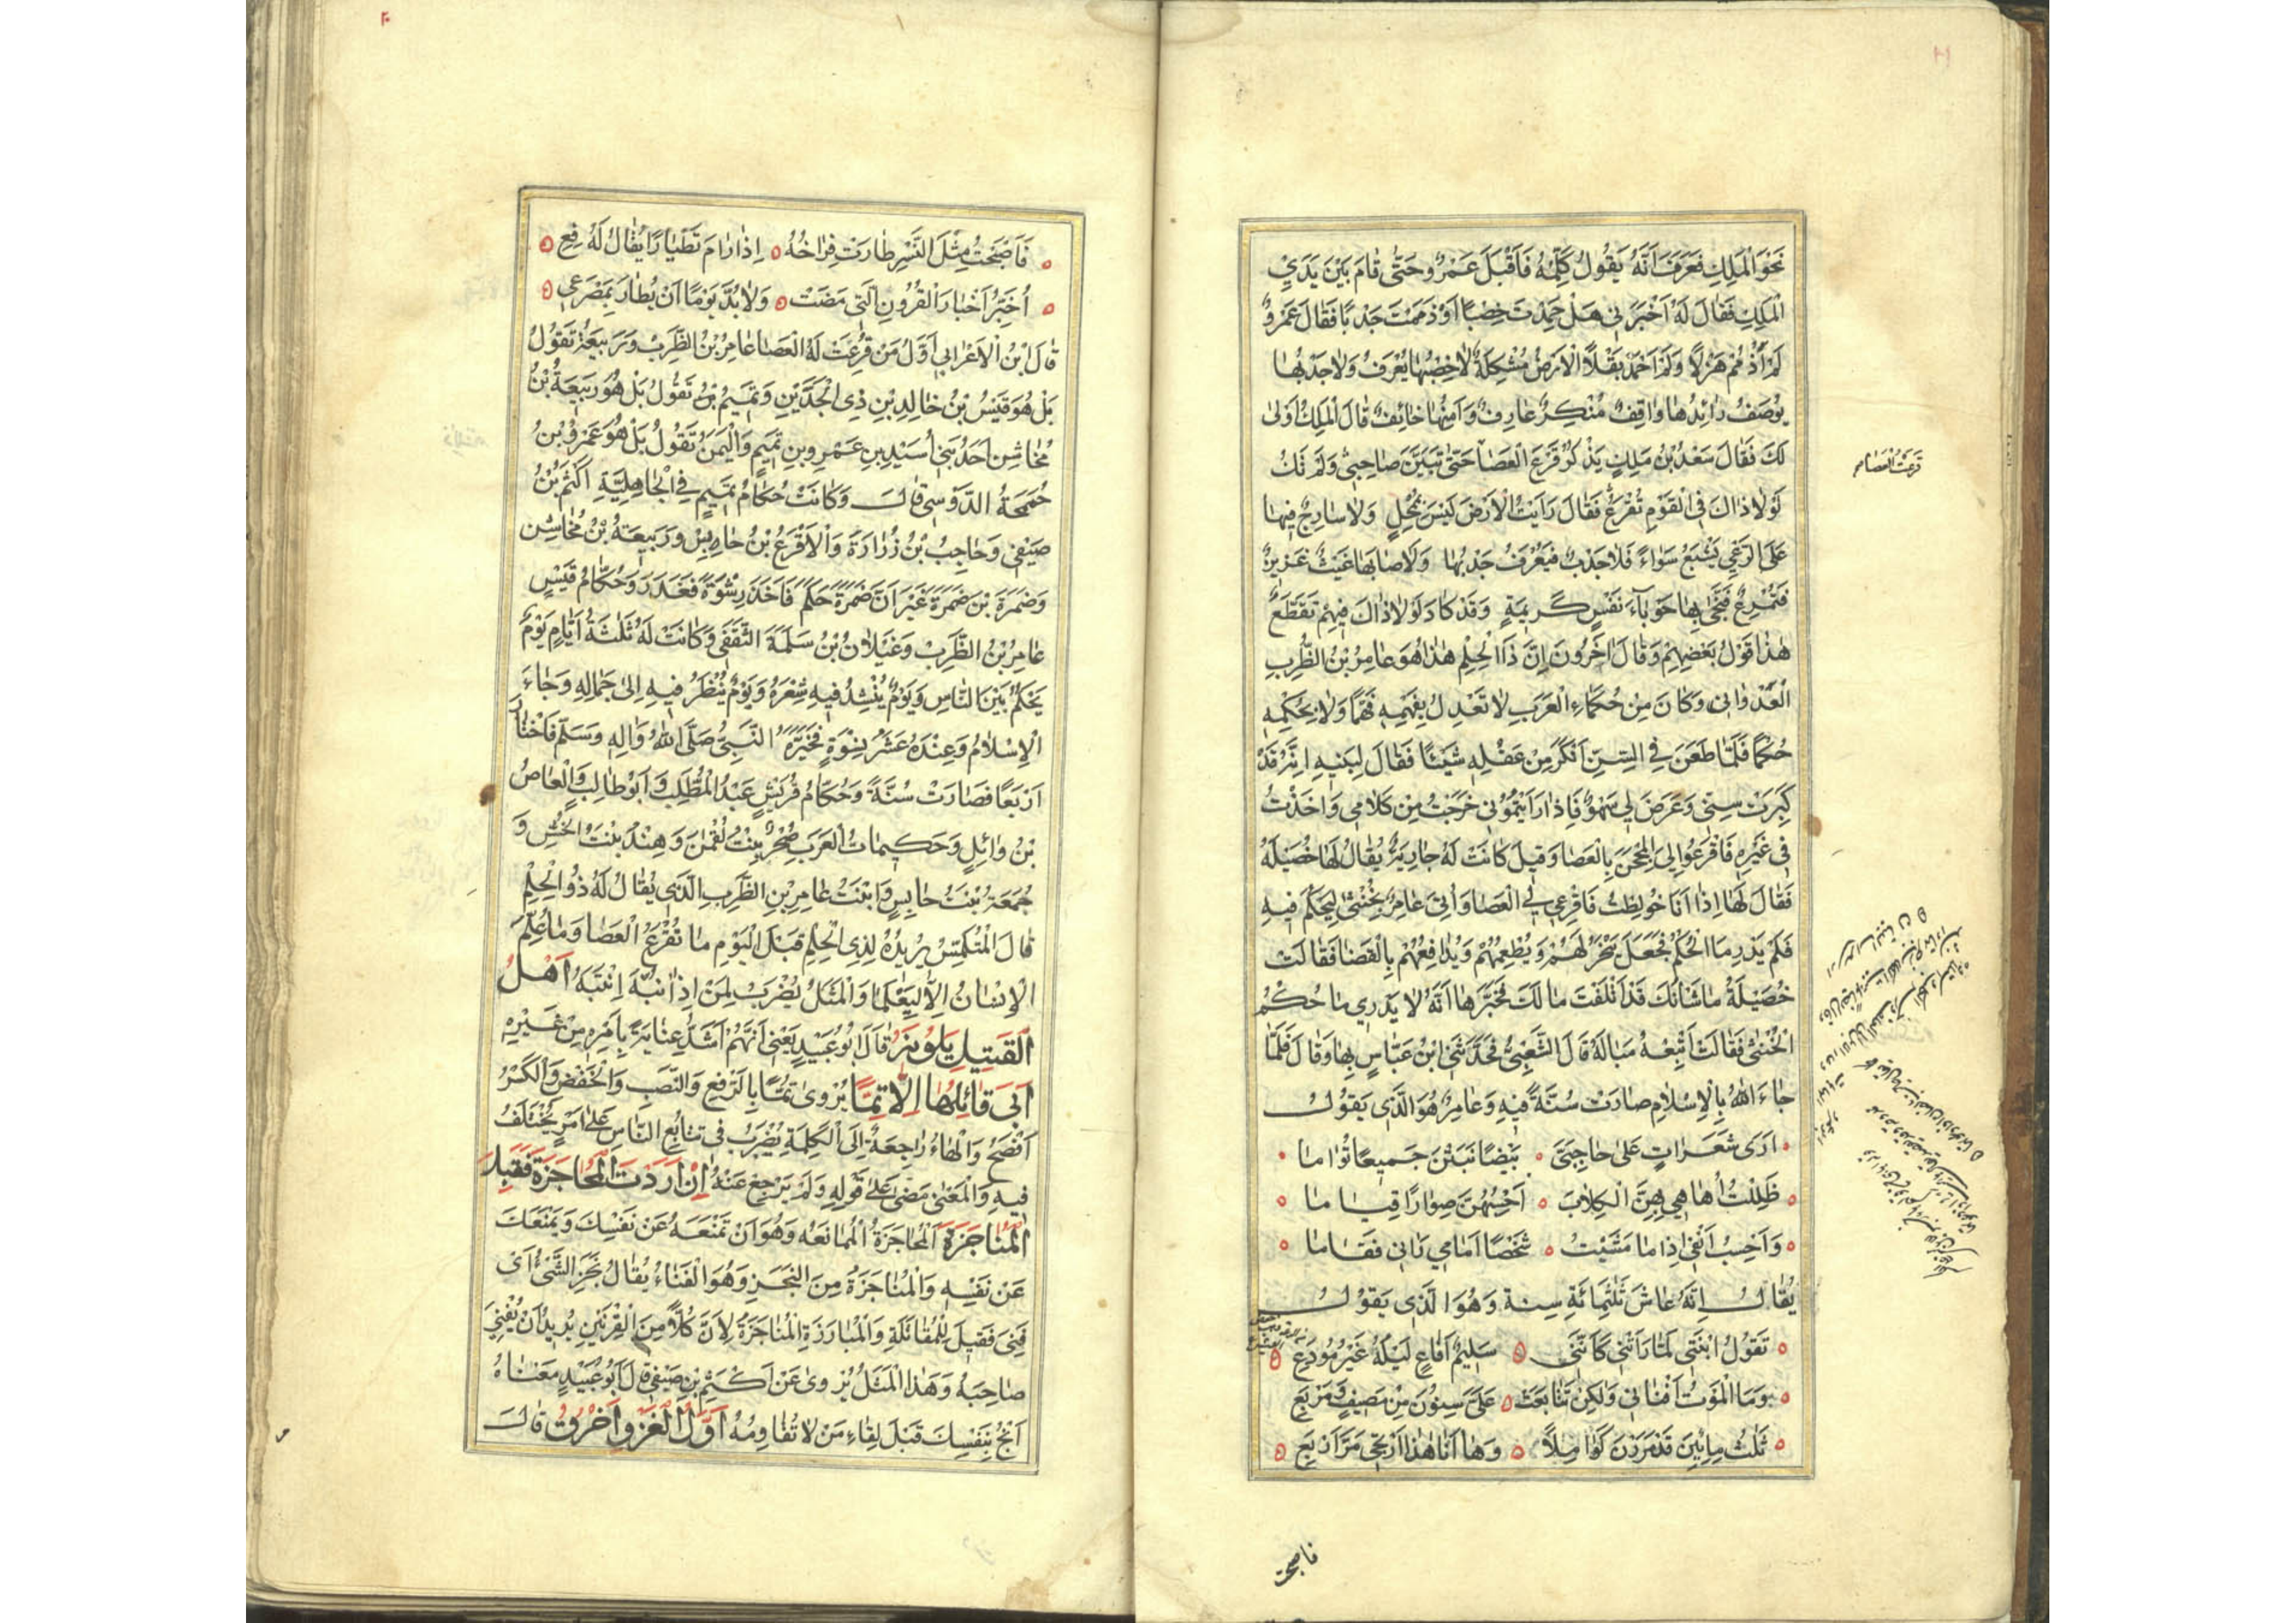 نَحْوَ الْمَلِكِ فَعَرَفَ اَنَّهُ يَقُولُ كَلِّمْهُ فَاَقْبَلَ عَمْرٌو حَتّٰى قَامَ بَيْنَ يَدَيِ
الْمَلِكِ فَقَالَ لَهُ اَخْبِرْنِى هَلْ حَمِدْتَ خِصْبًا اَوْ ذَمَمْتَ جَدْبًا فَقَالَ عَمْرٌو
لَمْ اَذْمُمْ هَزْلًا وَلَمْ اَحْمَدْ بَقْلًا الْاَرْضُ مُشْكِلَةٌ لَا خِصْبُهَا يُعْرَفُ وَلَا جَدْبُهَا
يُوصَفُ رَائِدُهَا وَاقِفٌ مُنْكِرٌ عَارِفٌ وَآمِنُهَا خَائِفٌ قَالَ الْمَلِكُ اَوْلٰى
لَكَ فَقَالَ سَعْدُ بْنُ مَلِكٍ يَذْكُرُ قَرْعَ الْعَصَا حَتّٰى تَبَيَّنَ صَاحِبِى وَلَمْ تَكُ
لَوْلَا ذَاكَ فِى الْقَوْمِ تُقْرَعُ فَقَالَ رَاَيْتُ الْاَرْضَ لَيْسَ بِمُحْلٍ وَلَا سَارِحٌ فِيهَا
عَلَى الرَّعْىِ يَشْبَعُ سَوَاءً فَلَا جَدْبٌ فَيُعْرَفُ جَدْبُهَا وَلَا صَابَهَا غَيْثٌ غَزِيرٌ
فَتُمْرِعُ فَنَجّٰى بِهَا حَوْبَاءَ نَفْسٍ كَرِيمَةٍ وَقَدْ كَادَ لَوْلَا ذَاكَ فِيهِمْ تَقَطَّعُ
هٰذَا قَوْلُ بَعْضِهِمْ وَقَالَ اٰخَرُونَ اِنَّ ذَا الْحِلْمِ هٰذَا هُوَ عَامِرُ بْنُ الظَّرِبِ
الْعَدْوَانِى وَكَانَ مِنْ حُكَمَاءِ الْعَرَبِ لَا تَعْدِلُ بِفَهْمِهِ فَهْمًا وَلَا بِحُكْمِهِ
حُكْمًا فَلَمَّا طَعَنَ فِى السِّنِّ اَنْكَرَ مِنْ عَقْلِهِ شَيْئًا فَقَالَ لِبَنِيهِ اِنَّهُ قَدْ
كَبِرَتْ سِنِّى وَعَرَضَ لِى سَهْوٌ فَاِذَا رَاَيْتُمُونِى خَرَجْتُ مِنْ كَلَامِى وَاَخَذْتُ
فِى غَيْرِهِ فَاقْرَعُوا لِىَ الْمِجَنَّ بِالْعَصَا وَقِيلَ كَانَتْ لَهُ جَارِيَةٌ يُقَالُ لَهَا خُصَيْلَةُ
فَقَالَ لَهَا اِذَا اَنَا خُولِطْتُ فَاقْرَعِى لِى الْعَصَا وَاُتِىَ عَامِرٌ بِخُنْثٰى لِيَحْكُمَ فِيهِ
فَلَمْ يَدْرِ مَا الْحُكْمُ فَجَعَلَ يَنْحَرُ لَهُمْ وَيُطْعِمُهُمْ وَيُدَافِعُهُمْ بِالْقَضَا فَقَالَتْ
خُصَيْلَةُ مَا شَانُكَ قَدْ اَتْلَفْتَ مَا لَكَ فَخَبَّرَهَا اَنَّهُ لَا يَدْرِى مَا حُكْمُ
الْخُنْثٰى فَقَالَتْ اَتْبِعْهُ مَبَالَهُ قَالَ الشَّعْبِىُّ فَحَدَّثَنِى ابْنُ عَبَّاسٍ بِهَا وَقَالَ فَلَمَّا
جَاءَ اللهُ بِالْاِسْلَامِ صَارَتْ سُنَّةً فِيهِ وَعَامِرٌ هُوَ الَّذِى يَقُولُ
اَرٰى شَعَرَاتٍ عَلٰى حَاجِبَىَّ ٥ بِيضًا نَبَتْنَ جَمِيعًا تُؤَامَا
ظَلِلْتُ اُهَاهِى بِهِنَّ الْكِلَابَ ٥ اَحْسِبُهُنَّ صِوَارًا قِيَامَا
وَاَحْسِبُ اَنْفِى اِذَا مَا مَشَيْتُ ٥ شَخْصًا اَمَامِى رَاٰنِى فَقَامَا
يُقَالُ اِنَّهُ عَاشَ ثَلٰثَمِائَةِ سِنة وَهُوَ الَّذِى يَقُولُ
تَقُولُ ابْنَتِى لَمَّا رَاَتْنِى كَاَنَّنِى ٥ سَلِيمُ اَفَاعٍ لَيْلَهُ غَيْرُ مُودَعِ
وَمَا الْمَوْتُ اَفْنَانِى وَلٰكِنْ تَتَابَعَتْ ٥ عَلَىَّ سِنُونَ مِنْ مَصِيفٍ وَمَرْبَعِ
ثَلٰثُ مِئِينَ قَدْ مَرَرْنَ كَوَامِلًا ٥ وَهَا اَنَا هٰذَا اَرْتَجِى مَرَّ اَرْبَعِ
قرعت العصا
فاصبحت
فَاَصْبَحْتُ مِثْلَ النَّسْرِ طَارَتْ فِرَاخُهُ ٥ اِذَا رَامَ تَطْيَارًا يُقَالُ لَهُ قَعِ
اُخَبِّرُ اَخْبَارَ الْقُرُونِ الَّتِى مَضَتْ ٥ وَلَا بُدَّ يَوْمًا اَنْ يُطَارَ بِمَصْرَعِى
قَالَ ابْنُ الْاَعْرَابِى اَوَّلُ مَنْ قُرِعَتْ لَهُ الْعَصَا عَامِرُ بْنُ الظَّرِبْ وَرَبِيعَةُ تَقُولُ
بَلْ هُوَ قَيْسُ بْنُ خَالِدِ بْنِ ذِى الْجَدَّيْنِ وَتَمِيمُ بْنُ تَقُولُ بَلْ هُوَ رَبِيعَةُ بْنُ
مُخَاشِن اَحَدُ بَنِى اُسَيْدِ بنِ عَمْرِو بنِ تَمِيمٍ وَالْيَمَنُ تَقُولُ بَلْ هُوَ عَمْرُو بْنُ
حُمَمَةُ الدَّوْسِى قَالَ وَكَانَتْ حُكَّامُ تَمِيمٍ فِى الْجَاهِلِيَّةِ اَكْثَمُ بْنُ
صَيْفِى وَحَاجِبُ بْنُ زُرَارَةَ وَالْاَقْرَعُ بْنُ حَابِسْ وَرَبِيعَةُ بْنُ مُخَاشِن
وَضَمْرَةَ بْنَ ضَمْرَةَ غَيْرَ اَنَّ ضَمْرَةَ حَكَمَ فَاَخَذَ رِشْوَةً فَغَدَرَ وَحُكَّامُ قَيْسٍ
عَامِرُ بْنُ الظَّرِبْ وَغَيْلَانُ بْنُ سَلَمَةَ الثَّقَفِى وَكَانَتْ لَهُ ثَلٰثَةُ اَيَّامٍ يَوْمٌ
يَحْكُمُ بَيْنَ النَّاسِ وَيَوْمٌ يُنْشِدُ فِيهِ شِعْرَهُ وَيَوْمٌ يُنْظَرُ فِيهِ اِلٰى جَمَالِهِ وَجَاءَ
الْاِسْلَامُ وَعِنْدَهُ عَشَرُ نِسْوَةٍ فَخَيَّرَهُ النَّبِىُّ صَلَّى اللهُ وَاٰلِهِ وَسَلَّمَ فَاخْتَارَ
اَرْبَعًا فَصَارَتْ سُنَّةً وَحُكَّامُ قُرَيْشٍ عَبْدُ الْمُطَّلِبْ وَاَبُو طَالِبْ وَالْعَاصُ
بْنُ وَائِلٍ وَحَكِيمَاتُ الْعَرَبِ صُحْرُ بِنْتُ لُقْمٰنَ وَهِنْدُ بِنْتَ الْخُسِّ وَ
جُمَعَةُ بِنْتُ حَابِسٍ وَابْنَتُ عَامِرِ بْنِ الظَّرِبِ الَّذِى يُقَالُ لَهُ ذُو الْحِلْمِ
قَالَ الْمُتَلَمِّسْ يُرِيدُهُ لِذِى الْحِلْمِ قَبْلَ الْيَوْمِ مَا تُقْرَعُ الْعَصَا وَمَا عُلِّمَ
الْاِنْسَانُ اِلَّا لِيَعْلَمَا وَالْمَثَلُ يُضْرَبُ لِمَنْ اِذَا نُبِّهَ اِنْتَبَهَ اَهْلُ
الْقَتِيلِ يَلُونَهُ قَالَ اَبُو عُبَيْدٍ يَعْنِى اَنَّهُمْ اَشَدُّ عِنَايَةً بِاَمْرِهِ مِنْ غَيْرِهِ
اَبٰى قَائِلُهَا اِلَّا تِمًّا يُرْوٰى تِمًّا بِالرَّفْعِ وَالنَّصَبِ وَالْخَفْضِ وَالْكَسْرُ
اَفْصَحُ وَالْهَاءُ رَاجِعَةٌ اِلَى الْكَلِمَةِ يُضْرَبُ فِى تَتَابُعِ النَّاسِ عَلٰى اَمْرٍ يُخْتَلَفُ
فِيهِ وَالْمَعْنٰى مَضٰى عَلٰى قَوْلِهِ وَلَمْ يَرْجِعْ عَنْهُ اِنْ اَرَدْتَ الْمُحَاجَزَةَ فَقَبْلَ
الْمُنَاجَزَةِ اَلْمُحَاجَزَةُ الْمُمَانَعَةُ وَهُوَ اَنْ تَمْنَعَهُ عَنْ نَفْسِكَ وَيَمْنَعَكَ
عَنْ نَفْسِهِ وَالْمُنَاجَزَةُ مِنَ النَّجَزِ وَهُوَ الْفَنَاءُ يُقَالُ نَجَزَ الشَّىْءُ اَىْ
فَنِىَ فَقِيلَ لِلْمُقَاتَلَةِ وَالْمُبَارَزَةِ الْمُنَاجَزَةُ لِاَنَّ كُلًّا مِنَ الْقِرْنَيْنِ يُرِيدُ اَنْ يُفْنِىَ
صَاحِبَهُ وَهٰذَا الْمَثَلُ يُرْوٰى عَنْ اَكْثَمِ بْنِ صَيْفِى قَالَ اَبُو عُبَيْدٍ مَعْنَاهُ
اَنْجُ بِنَفْسِكَ قَبْلَ لِقَاءِ مَنْ لَا تُقَاوِمُهُ اَوَّلُ الْغَزْوِ اَخْرَقُ قَالَ